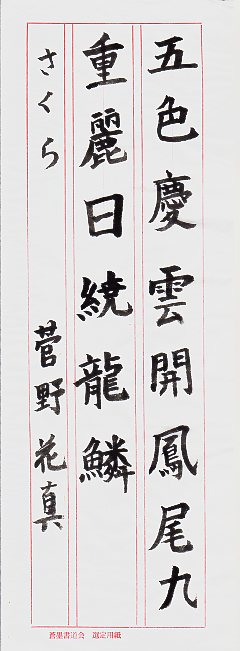 五色慶雲開鳳尾九
重麗日繞龍鱗
さくら 菅野花真
蒼墨書道会 選定用紙